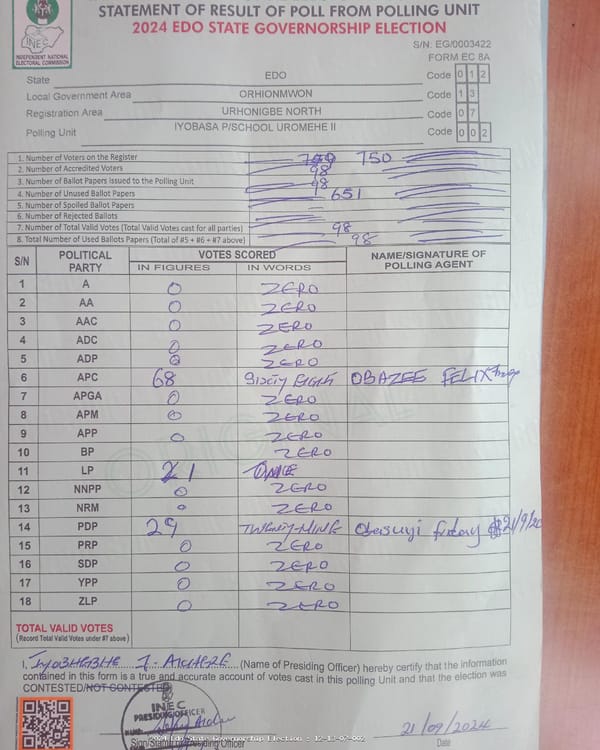 STATEMENT OF RESULT OF POLL FROM POLLING UNIT
2024 EDO STATE GOVERNORSHIP ELECTION
INEC
INDEPENDENT NATIONAL ELECTORAL COMMISSION
S/N: EG/0003422
FORM EC 8A
State EDO Code 0 1 2
Local Government Area ORHIONMWON Code 1 3
Registration Area URHONIGBE NORTH Code 0 7
Polling Unit IYOBASA P/SCHOOL UROMEHE II Code 0 0 2
1. Number of Voters on the Register 750
2. Number of Accredited Voters 98
3. Number of Ballot Papers Issued to the Polling Unit
4. Number of Unused Ballot Papers 651
5. Number of Spoiled Ballot Papers
6. Number of Rejected Ballots
7. Number of Total Valid Votes (Total Valid Votes cast for all parties) 98
8. Total Number of Used Ballots Papers (Total of #5 + #6 + #7 above) 98
S/N POLITICAL PARTY VOTES SCORED NAME/SIGNATURE OF POLLING AGENT
IN FIGURES IN WORDS
1 A 0 ZERO
2 AA 0 ZERO
3 AAC 0 ZERO
4 ADC 0 ZERO
5 ADP 0 ZERO
6 APC 68 SIXTY EIGHT OBAZEE FELIX
7 APGA 0 ZERO
8 APM 0 ZERO
9 APP 0 ZERO
10 BP ZERO
11 LP 1
12 NNPP 0 ZERO
13 NRM 0 ZERO
14 PDP 29 TWENTY-NINE Obasuyi friday 21/9/20
15 PRP 0 ZERO
16 SDP 0 ZERO
17 YPP 0 ZERO
18 ZLP 0 ZERO
TOTAL VALID VOTES
(Record Total Valid Votes under #7 above)
I, (Name of Presiding Officer) hereby certify that the information
contained in this form is a true and accurate account of votes cast in this polling Unit and that the election was
CONTESTED/NOT CONTESTED
INEC
PRESIDING OFFICER
21/09/2024
2024 Edo State Governorship Election : 12-13-07-002
Date